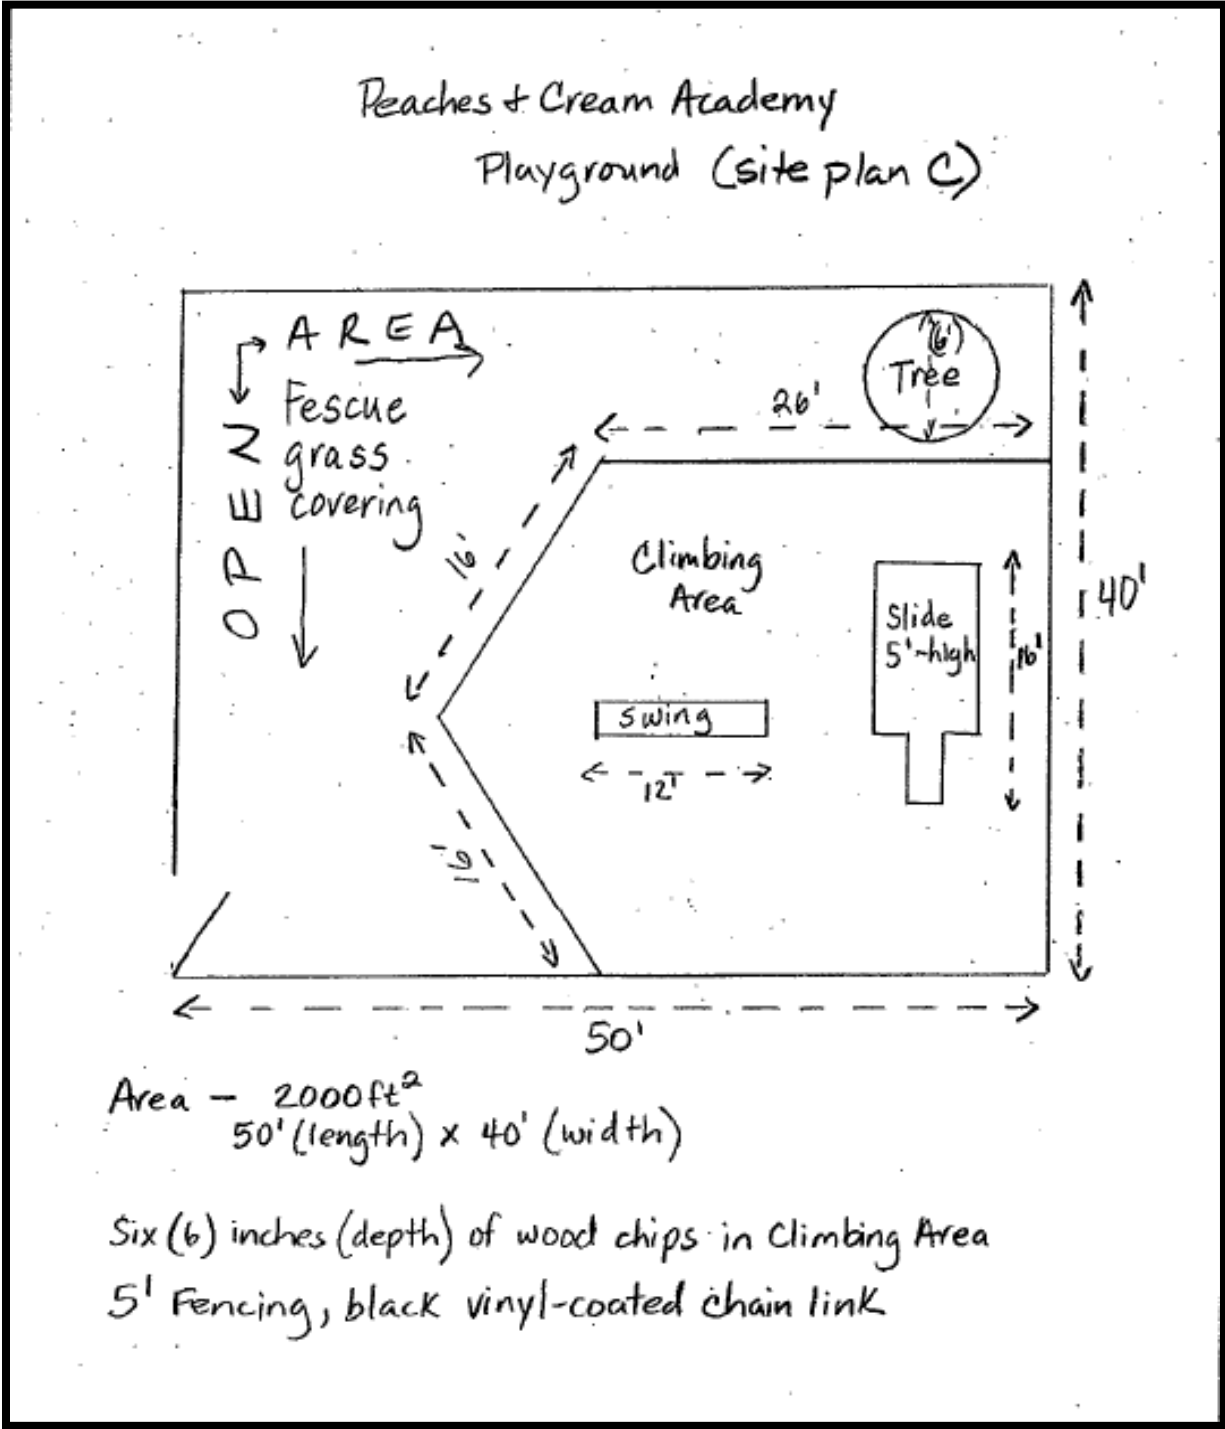 Peaches + Cream Academy
Playground (site plan C)
AREA
OPEN
Fescue
grass
covering
(6')
Tree
26'
16'
Climbing
Area
Slide
5'-high
16'
40'
Swing
12'
16'
50'
Area - 2000ft²
50' (length) x 40' (width)
Six (6) inches (depth) of wood chips in Climbing Area
5' Fencing, black vinyl-coated chain link